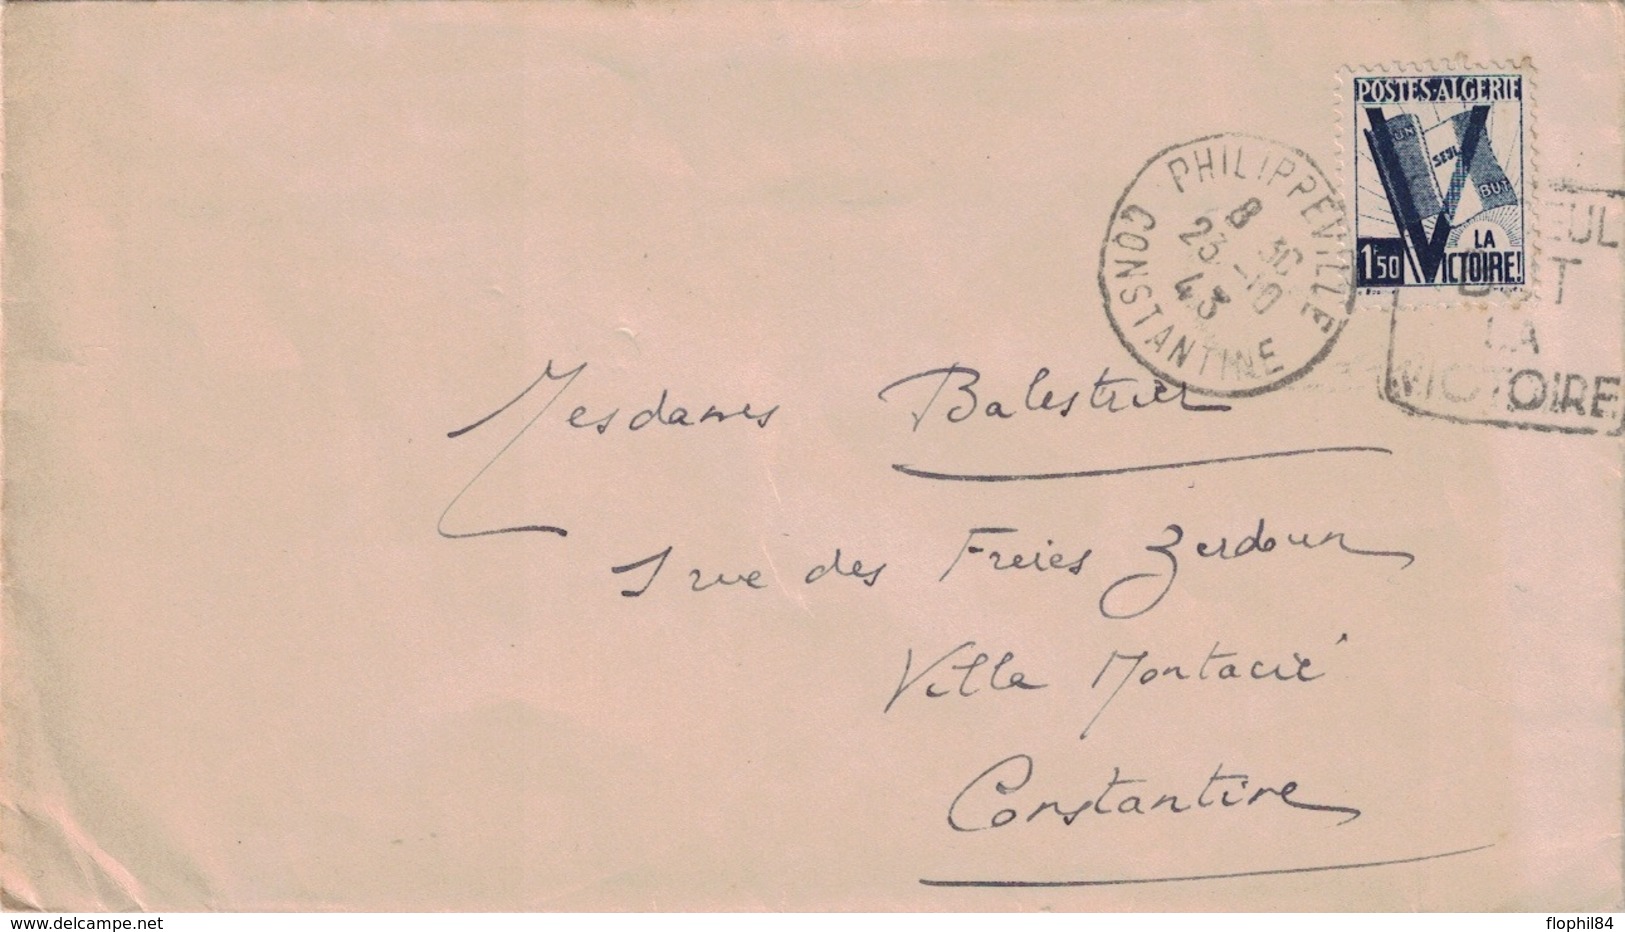 POSTES-ALGERIE
UN
SEUL
BUT
LA
VICTOIRE!
1F50
PHILIPPEVILLE
8 30
23 -10
43
CONSTANTINE
SEUL
BUT
LA
VICTOIRE
Mesdames Balestrier
1 rue des Frères Zerdoun
Villa Montacié
Constantine
www.delcampe.net
flophil84